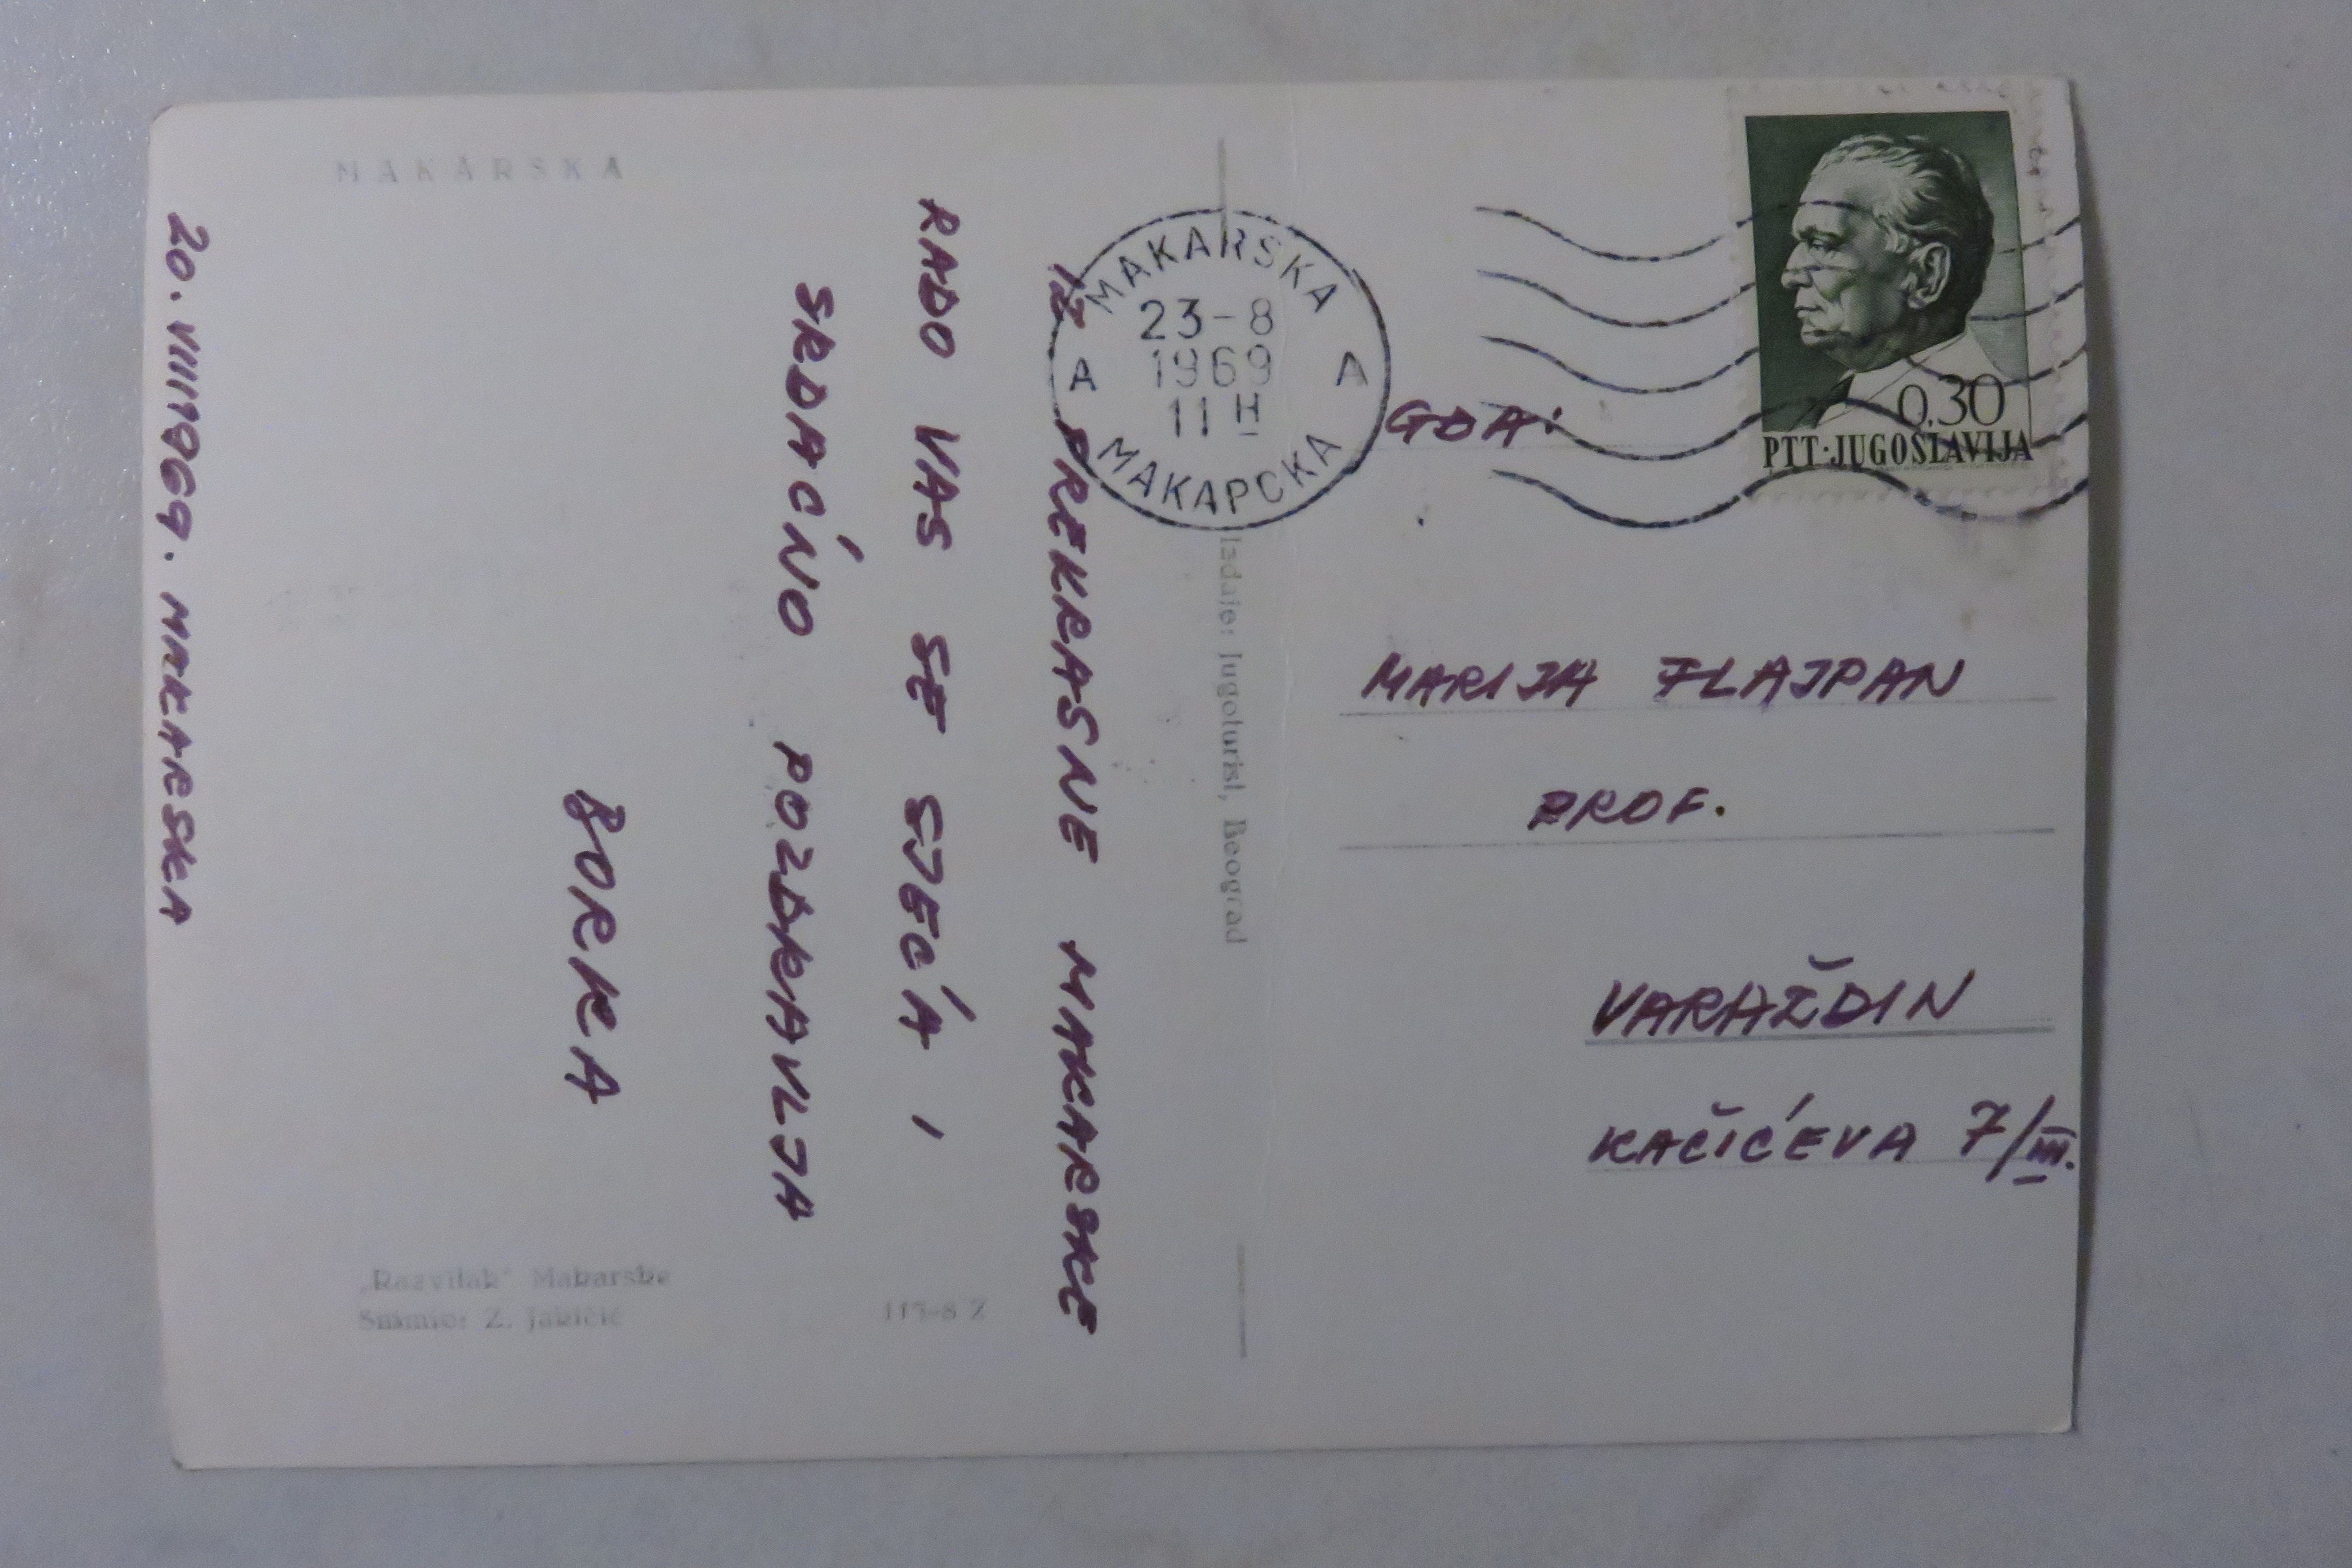 MAKARSKA
IZ PREKRASNE MAKARSKE
RADO VAS SE SJEĆA I
SRDAČNO POZDRAVLJA
BORKA
20. VIII 1969. MAKARSKA
„Razvitak" Makarska
Snimio: Z. Jakičić
113-8 Z
Izdaje: Jugoturist, Beograd
MAKARSKA
23-8
1969
11 H
A A
МАКАРСКА
0,30
PTT·JUGOSLAVIJA
GĐA:
MARIJA FLAJPAN
PROF.
VARAŽDIN
KAČIĆEVA 7/III.